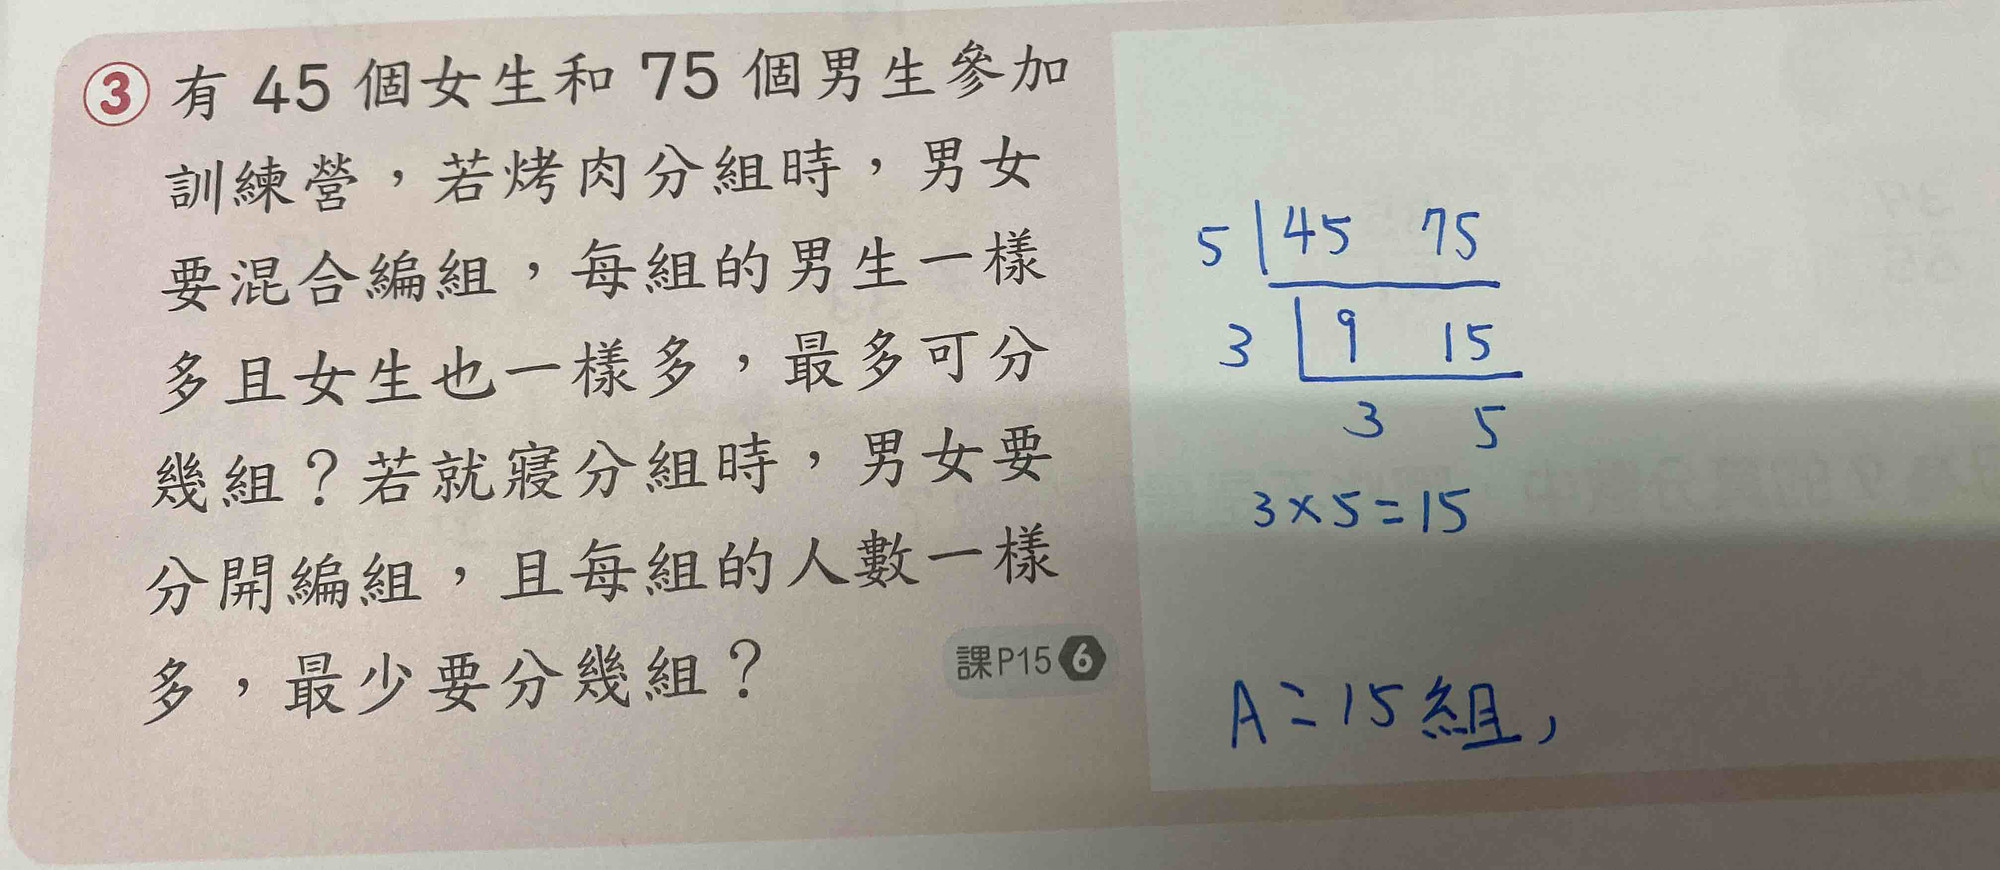 ③ 有 45 個女生和 75 個男生參加
訓練營，若烤肉分組時，男女
要混合編組，每組的男生一樣
多且女生也一樣多，最多可分
幾組？若就寢分組時，男女要
分開編組，且每組的人數一樣
多，最少要分幾組？
課P15 6
5 45 75
3 9 15
3 5
3×5=15
A：15組，